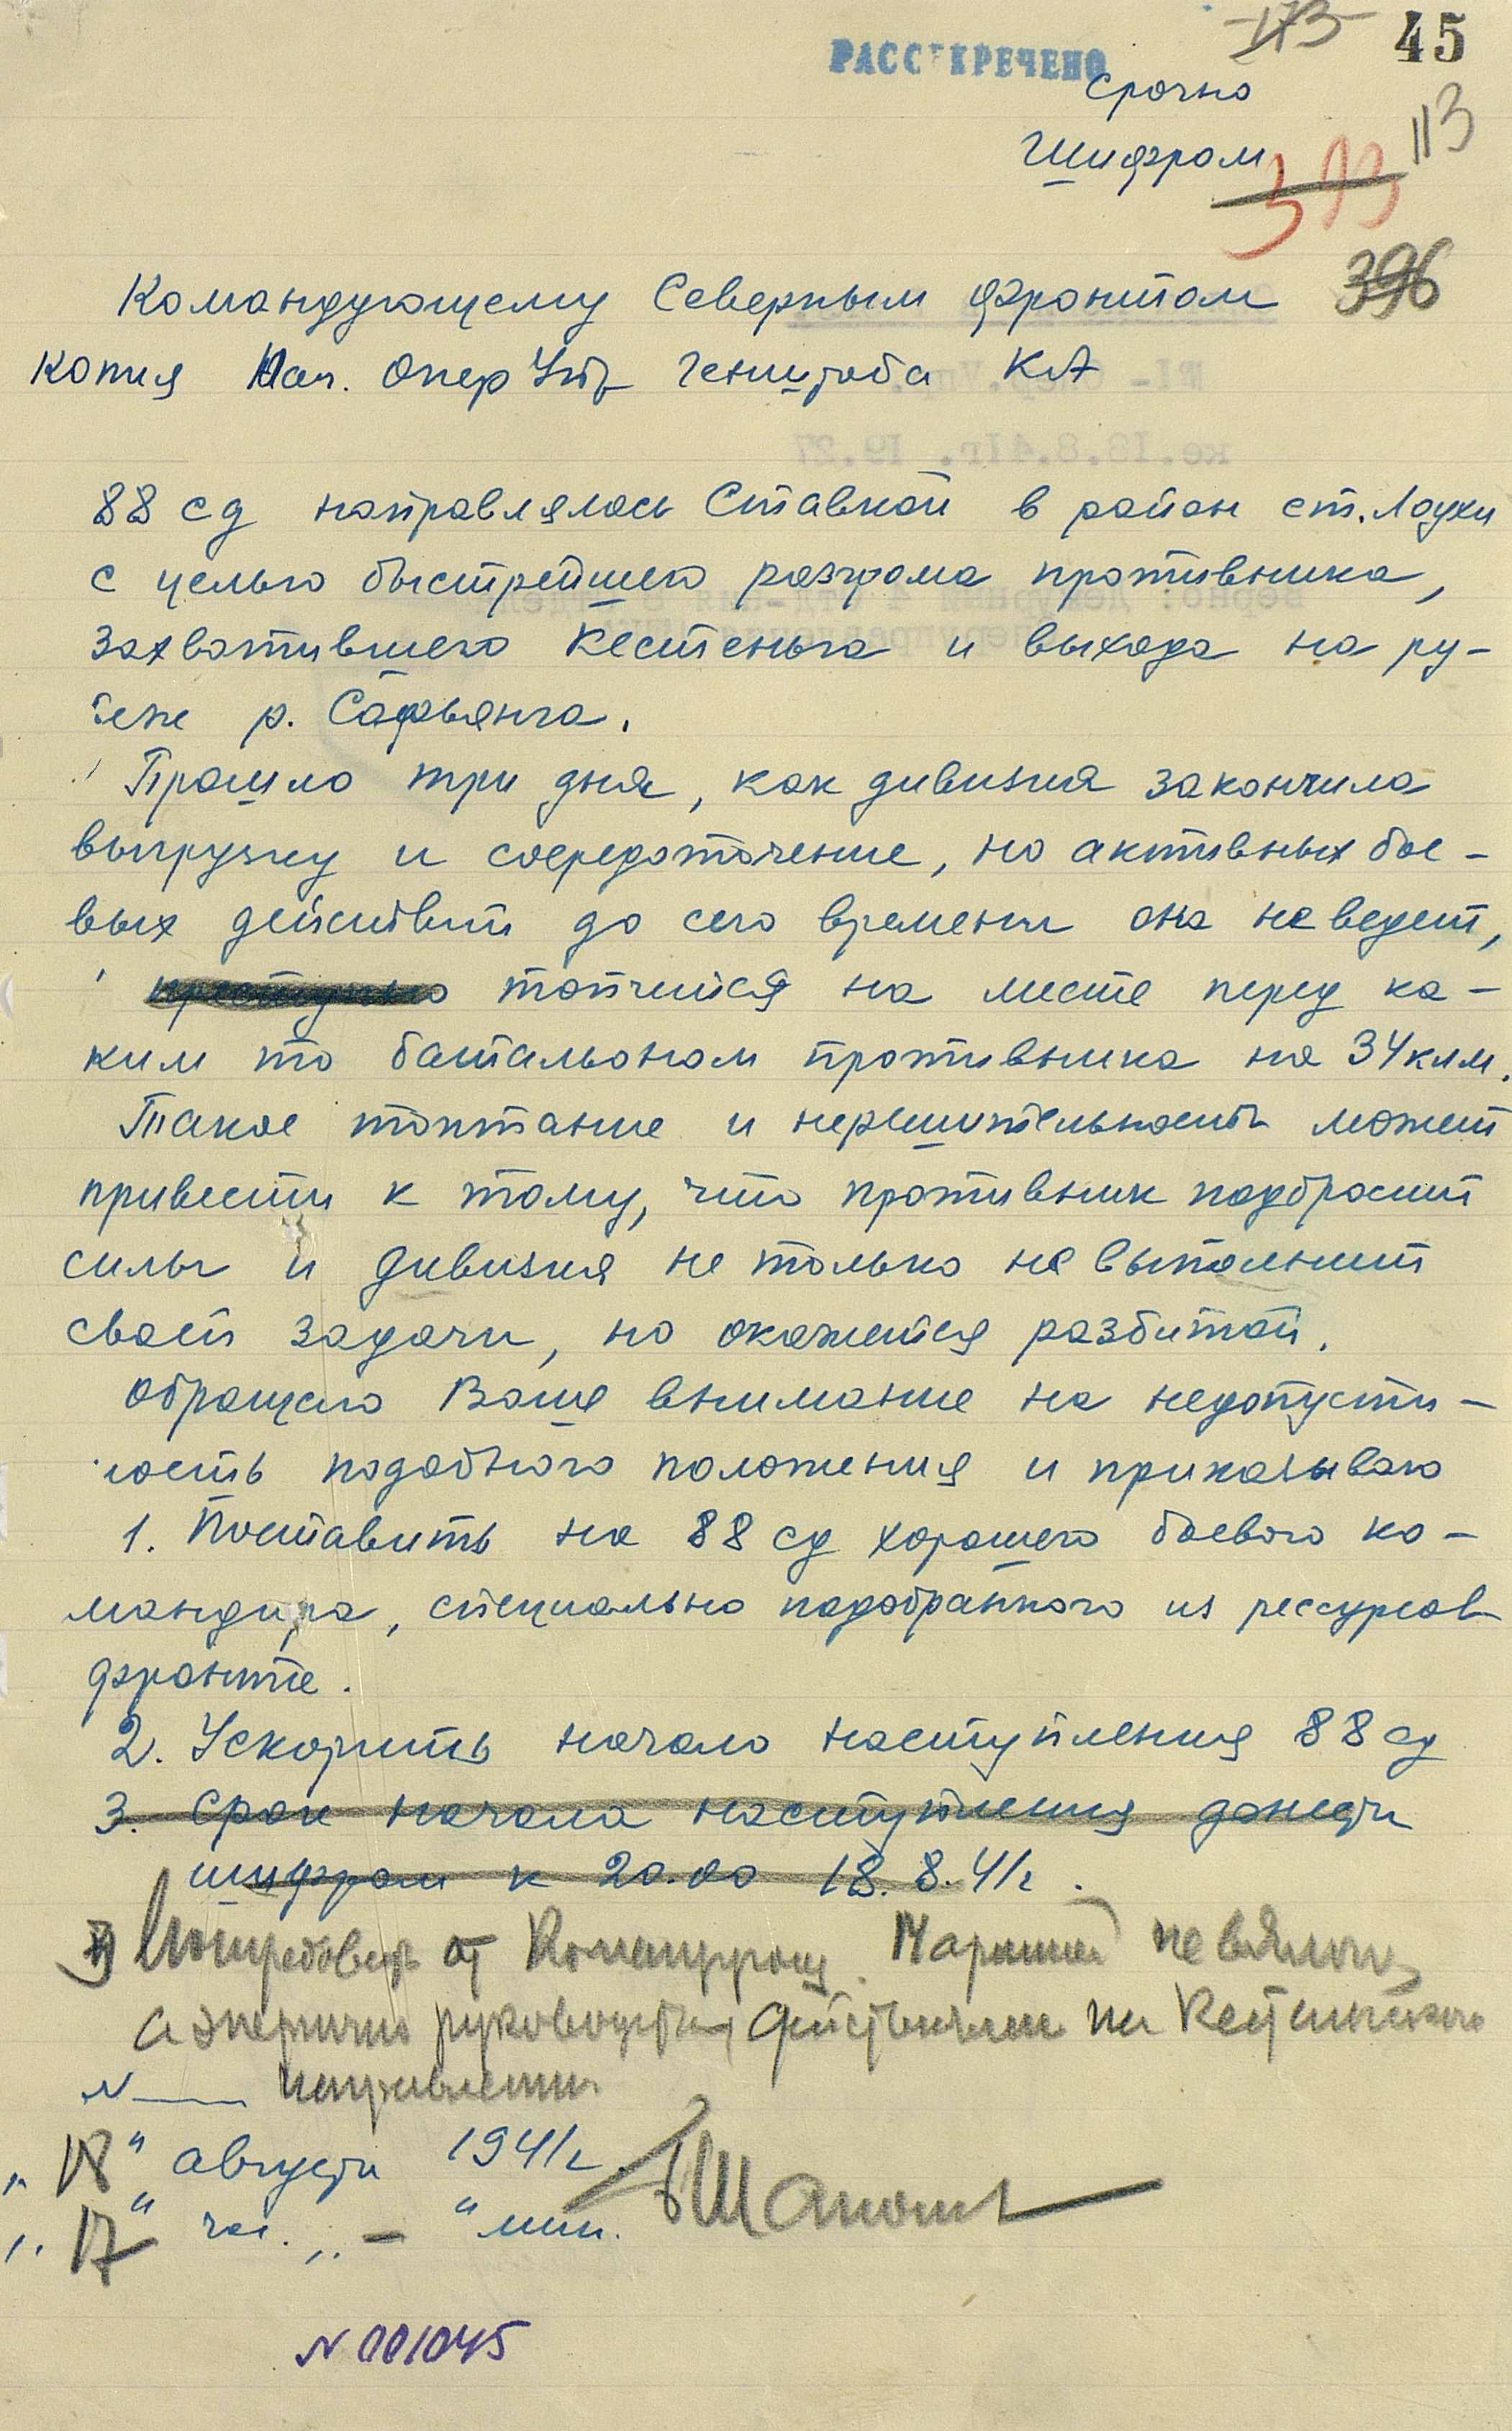 173
45
РАССЕКРЕЧЕНО
Срочно
113
Шифром
393
396
Командующему Северным фронтом
Копия Нач. ОперУпр Генштаба КА
88 сд направлялась Ставкой в район ст. Лоухи
с целью быстрейшего разгрома противника,
захватившего Кестеньга и выхода на ру-
беж р. Софьянга.
Прошло три дня, как дивизия закончила
выгрузку и сосредоточение, но активных бое-
вых действий до сего времени она не ведет,
преступно топчится на месте перед ка-
ким то батальоном противника на 34 клм.
Такое топтание и нерешительность может
привести к тому, что противник подбросит
силы и дивизия не только не выполнит
своей задачи, но окажется разбитой.
Обращаю Ваше внимание на недопусти-
мость подобного положения и приказываю
1. Поставить на 88 сд хорошего боевого ко-
мандира, специально подобранного из рессурсов
фронта.
2. Ускорить начало наступления 88 сд
3. Срок начала наступления донести
шифром к 20.00 18.8.41г.
3) Потребовать от Не вялого,
а энергичного руководства действиями на Кестеньгском
N направлении
"18" августа 1941г.
"17" час. " — " мин.
БШапошн
N 001045